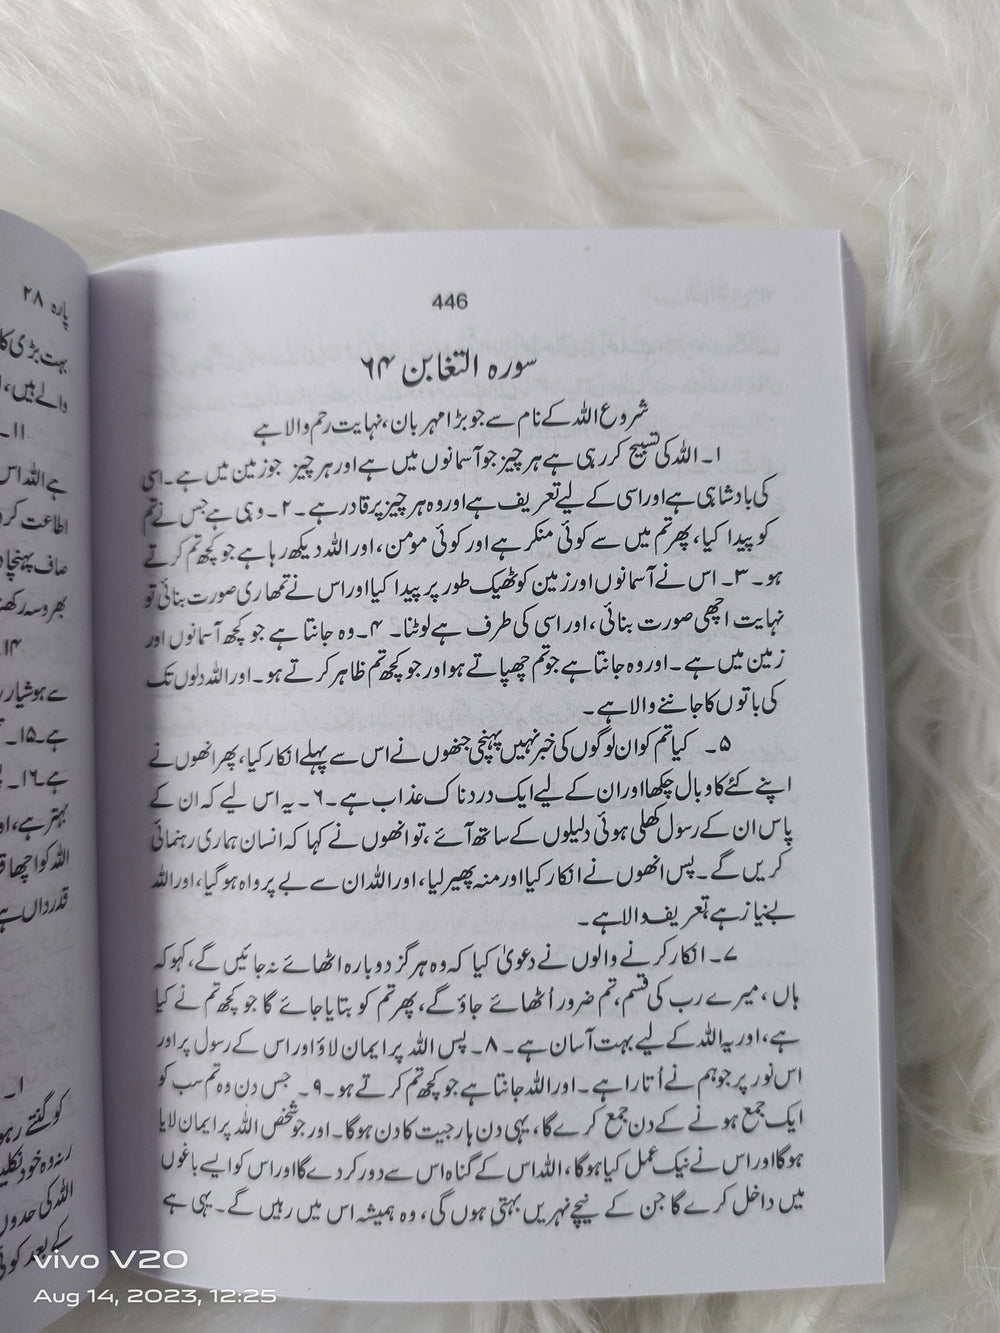 446
سورہ التغابن ۶۴
شروع اللہ کے نام سے جو بڑا مہربان، نہایت رحم والا ہے
۱۔ اللہ کی تسبیح کر رہی ہے ہر چیز جو آسمانوں میں ہے اور ہر چیز جو زمین میں ہے۔ اسی
کی بادشاہی ہے اور اسی کے لیے تعریف ہے اور وہ ہر چیز پر قادر ہے۔ ۲۔ وہی ہے جس نے تم
کو پیدا کیا، پھر تم میں سے کوئی منکر ہے اور کوئی مومن، اور اللہ دیکھ رہا ہے جو کچھ تم کرتے
ہو۔ ۳۔ اس نے آسمانوں اور زمین کو ٹھیک طور پر پیدا کیا اور اس نے تمھاری صورت بنائی تو
نہایت اچھی صورت بنائی، اور اسی کی طرف ہے لوٹنا۔ ۴۔ وہ جانتا ہے جو کچھ آسمانوں اور
زمین میں ہے۔ اور وہ جانتا ہے جو تم چھپاتے ہو اور جو کچھ تم ظاہر کرتے ہو۔ اور اللہ دلوں تک
کی باتوں کا جاننے والا ہے۔
۵۔ کیا تم کو ان لوگوں کی خبر نہیں پہنچی جنھوں نے اس سے پہلے انکار کیا، پھر انھوں نے
اپنے کئے کا وبال چکھا اور ان کے لیے ایک دردناک عذاب ہے۔ ۶۔ یہ اس لیے کہ ان کے
پاس ان کے رسول کھلی ہوئی دلیلوں کے ساتھ آئے، تو انھوں نے کہا کہ انسان ہماری رہنمائی
کریں گے۔ پس انھوں نے انکار کیا اور منہ پھیر لیا، اور اللہ ان سے بے پرواہ ہو گیا، اور اللہ
بے نیاز ہے تعریف والا ہے۔
۷۔ انکار کرنے والوں نے دعویٰ کیا کہ وہ ہرگز دوبارہ اٹھائے نہ جائیں گے، کہو کہ
ہاں، میرے رب کی قسم، تم ضرور اُٹھائے جاؤ گے، پھر تم کو بتایا جائے گا جو کچھ تم نے کیا
ہے، اور یہ اللہ کے لیے بہت آسان ہے۔ ۸۔ پس اللہ پر ایمان لاؤ اور اس کے رسول پر اور
اس نور پر جو ہم نے اُتارا ہے۔ اور اللہ جانتا ہے جو کچھ تم کرتے ہو۔ ۹۔ جس دن وہ تم سب کو
ایک جمع ہونے کے دن جمع کرے گا، یہی دن ہار جیت کا دن ہوگا۔ اور جو شخص اللہ پر ایمان لایا
ہوگا اور اس نے نیک عمل کیا ہوگا، اللہ اس کے گناہ اس سے دور کر دے گا اور اس کو ایسے باغوں
میں داخل کرے گا جن کے نیچے نہریں بہتی ہوں گی، وہ ہمیشہ اس میں رہیں گے۔ یہی ہے
پارہ ۲۸
بہت بڑی
والے ہیں،
۱۱۔
ہے اللہ اس
اطاعت کرو
صاف پہنچا
بھروسہ
۱۴۔
سے ہوشیار
ہے۔ ۱۵۔
ہے۔ ۱۶۔
بہتر ہے، اور
اللہ کو اچھا
قدرداں ہے
۱۔
کو گنتے رہو
نہ وہ خود
اللہ کی حدوں
کے بعد کوئی
vivo V20
Aug 14, 2023, 12:25